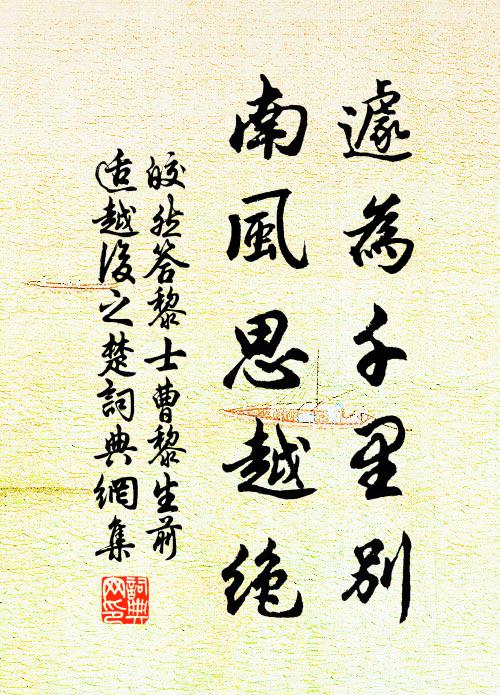 遽為千里別
南風思越絕
皎然答黎士曹黎生前
适越後之楚詞典網集
詞典網印